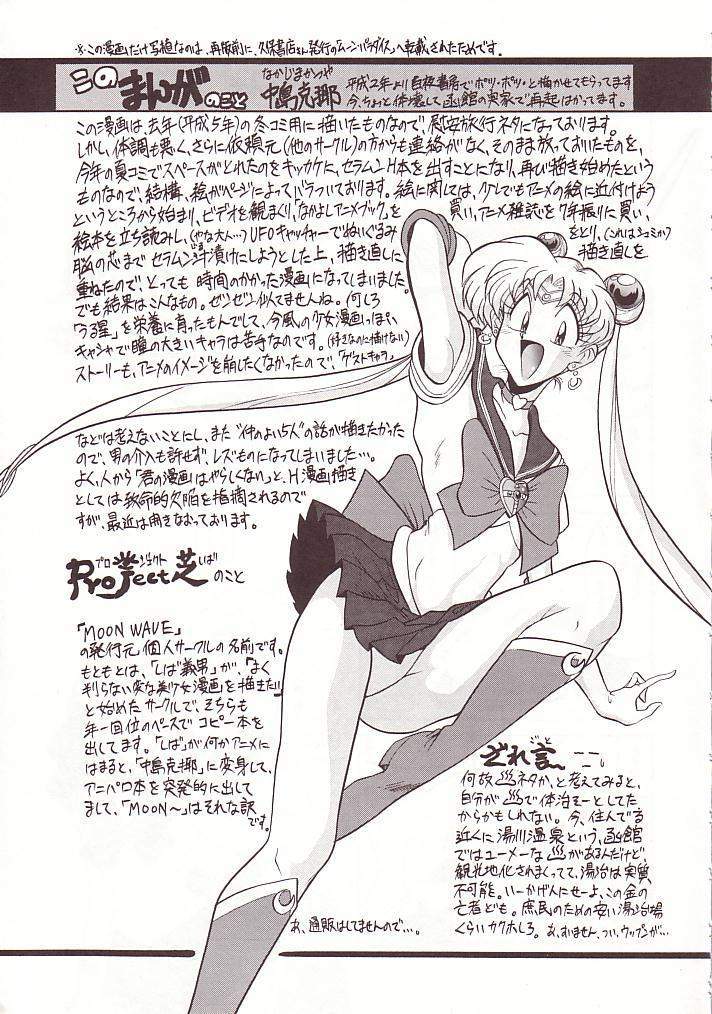 ※この漫画だけ写植なのは、再版前に、久保書店さん発行の「ムーンパラダイス」へ転載されたためです。
このまんがのこと
なかじまかつや
中島克耶
平成2年より白夜書房でポツ・ポツ・と描かせてもらってます
今、ちょっと体壊して函館の実家で再起はかってます。
この漫画は、去年(平成5年)の冬コミ用に描いたものなので、慰安旅行ネタになっております。
しかし、体調も悪く、さらに依頼元(他のサークル)の方からも連絡がなく、そのまま放っておいたものを、
今年の夏コミでスペースがとれたのをキッカケに、セラムンH本を出すことになり、再び描き始めたという
ものなので、結構、絵がページによってバラついております。絵に関しては、少しでもアニメの絵に近付けよう
というところから始まり、ビデオを観まくり「なかよしアニメブック」を買い、アニメ雑誌を7年振りに買い、
絵本を立ち読みし、(やな大人…)UFOキャッチャーでぬいぐるみをとり、(これはシュミか)
脳の芯までセラムン汁漬けにしようとした上、描き直しに描き直しを
重ねたので、とっても時間のかかった漫画になってしまいました。
でも結果はこんなもの。ゼンゼン似てませんね。何しろ
「うる星」を栄養に育ったもんでして、今風の少女漫画っぽい
キャシャで瞳の大きいキャラは苦手なのです。(好きなのに描けない)
ストーリーも、アニメのイメージを崩したくなかったので、「ゲストキャラ」
などは考えないことにし、また“仲のよい5人”の話が描きたかった
ので、男の介入も許せず、レズものになってしまいました…。
よく、人から「君の漫画はやらしくない」と、H漫画描き
としては致命的欠陥を指摘されるので
すが、最近は開きなおっております。
プロジェクトしば
Project芝のこと
「MOON WAVE」
の発行元、個人サークルの名前です。
もともとは、「しば義男」が「よく
判らない変な美少女漫画を描きたい」
と始めたサークルで、そちらも
年一回位のペースでコピー本を
出してます。「しば」が何かアニメに
はまると、「中島克耶」に変身して、
アニパロ本を突発的に出して
まして、「MOON〜」はそれな訳
です。
ざれ言
ごと
何故♨ネタか、と考えてみると、
自分が♨で体治そーとしてた
からかもしれない。今、住んでる
近くに湯川温泉という、函館
ではユーメーな♨があるんだけど、
観光地化されまくってて、湯治は実質
不可能。いーかげんにせーよ、この金の
亡者ども。庶民のための安い湯治場
くらいカクホしろ。あ、すいません、つい、ウップンが…
あ、通販はしてませんので…。